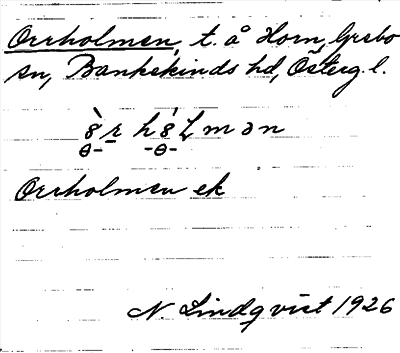 Orrholmen, t. å Horn, Grebo
sn, Bankekinds hd, Österg. l.
Orrholmen ek
N. Lindqvist 1926